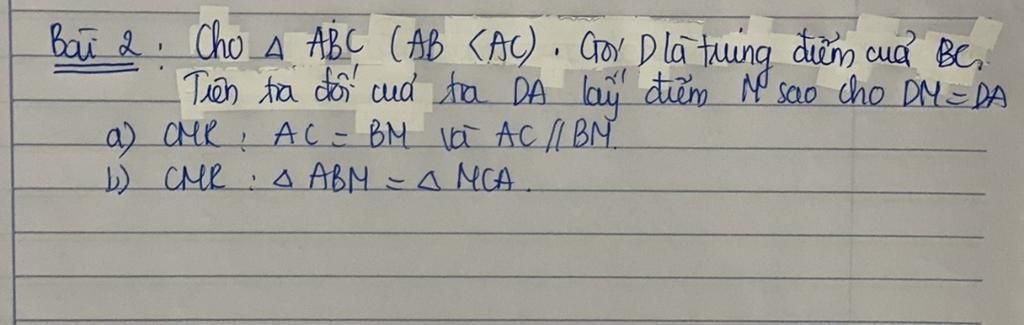 Bài 2: Cho Δ ABC (AB < AC). Gọi D là trung điểm của BC.
Trên tia đối của tia DA lấy điểm M sao cho DM = DA
a) CMR: AC = BM và AC // BM.
b) CMR: Δ ABM = Δ MCA.